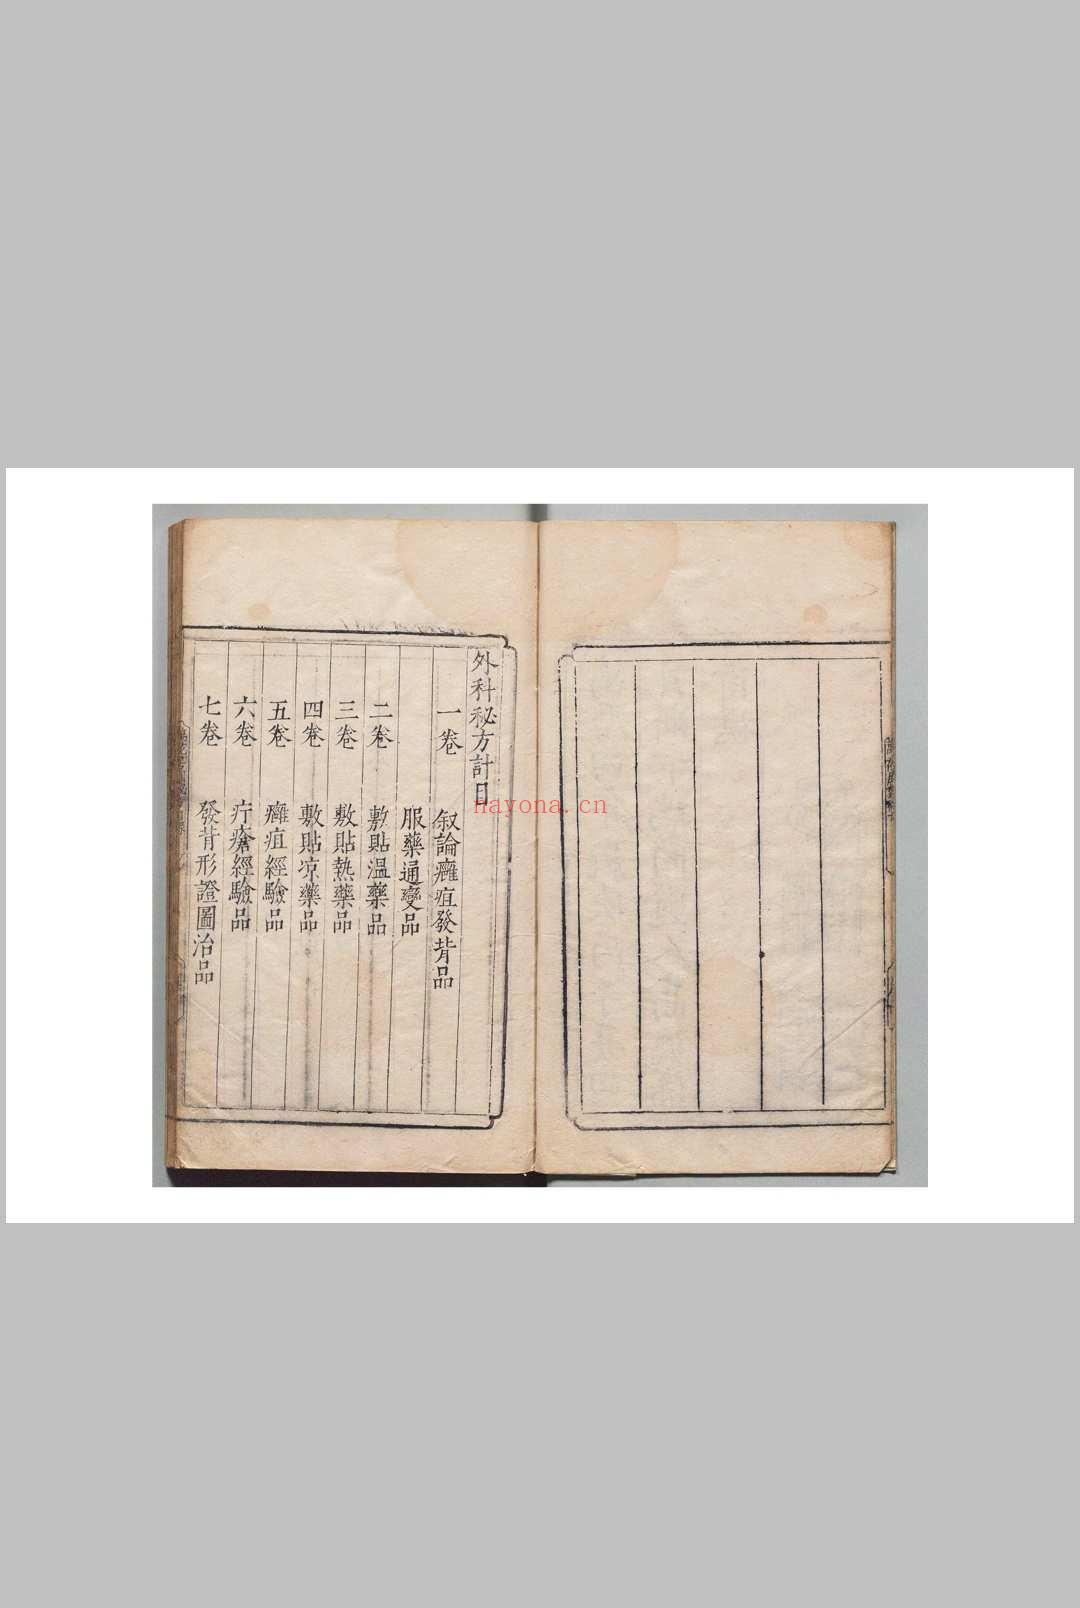 外科秘方計目
一卷 叙論癰疽發背品
服藥通變品
二卷 敷貼溫藥品
三卷 敷貼熱藥品
四卷 敷貼凉藥品
五卷 癰疽經驗品
六卷 疔瘡經驗品
七卷 發背形證圖治品
nayona.cn